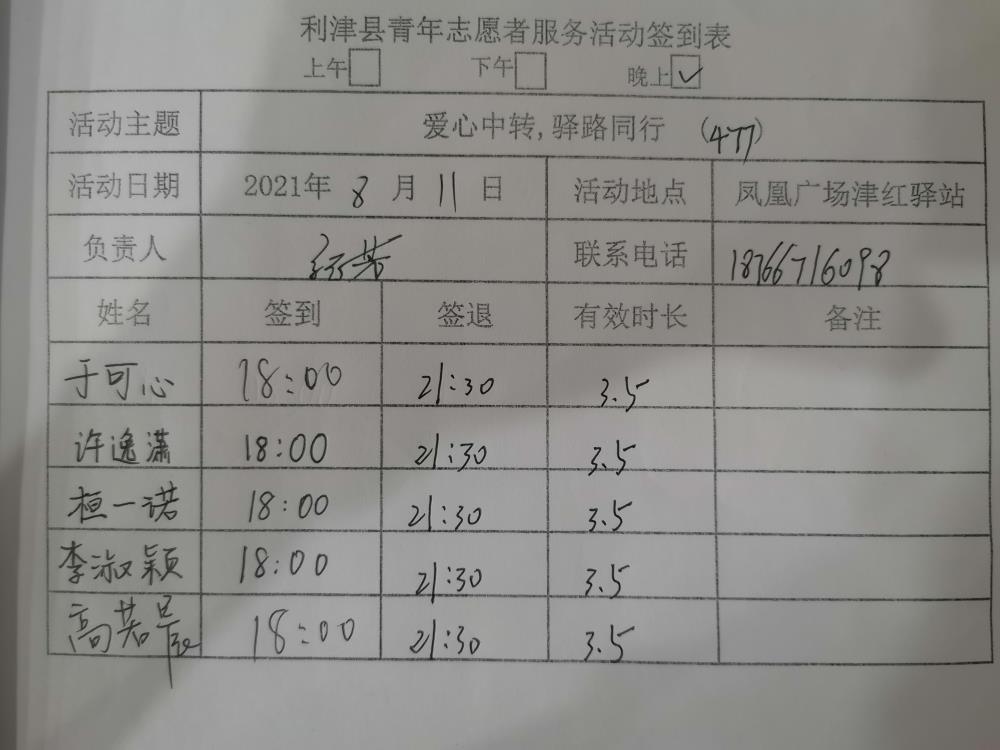 利津县青年志愿者服务活动签到表
上午 下午 晚上 ✓
活动主题 爱心中转,驿路同行 (477)
活动日期 2021年 8 月 11 日 活动地点 凤凰广场津红驿站
负责人 联系电话 18766716098
姓名 签到 签退 有效时长 备注
于可心 18:00 21:30 3.5
许逸潇 18:00 21:30 3.5
桓一诺 18:00 21:30 3.5
李淑颖 18:00 21:30 3.5
高若 18:00 21:30 3.5